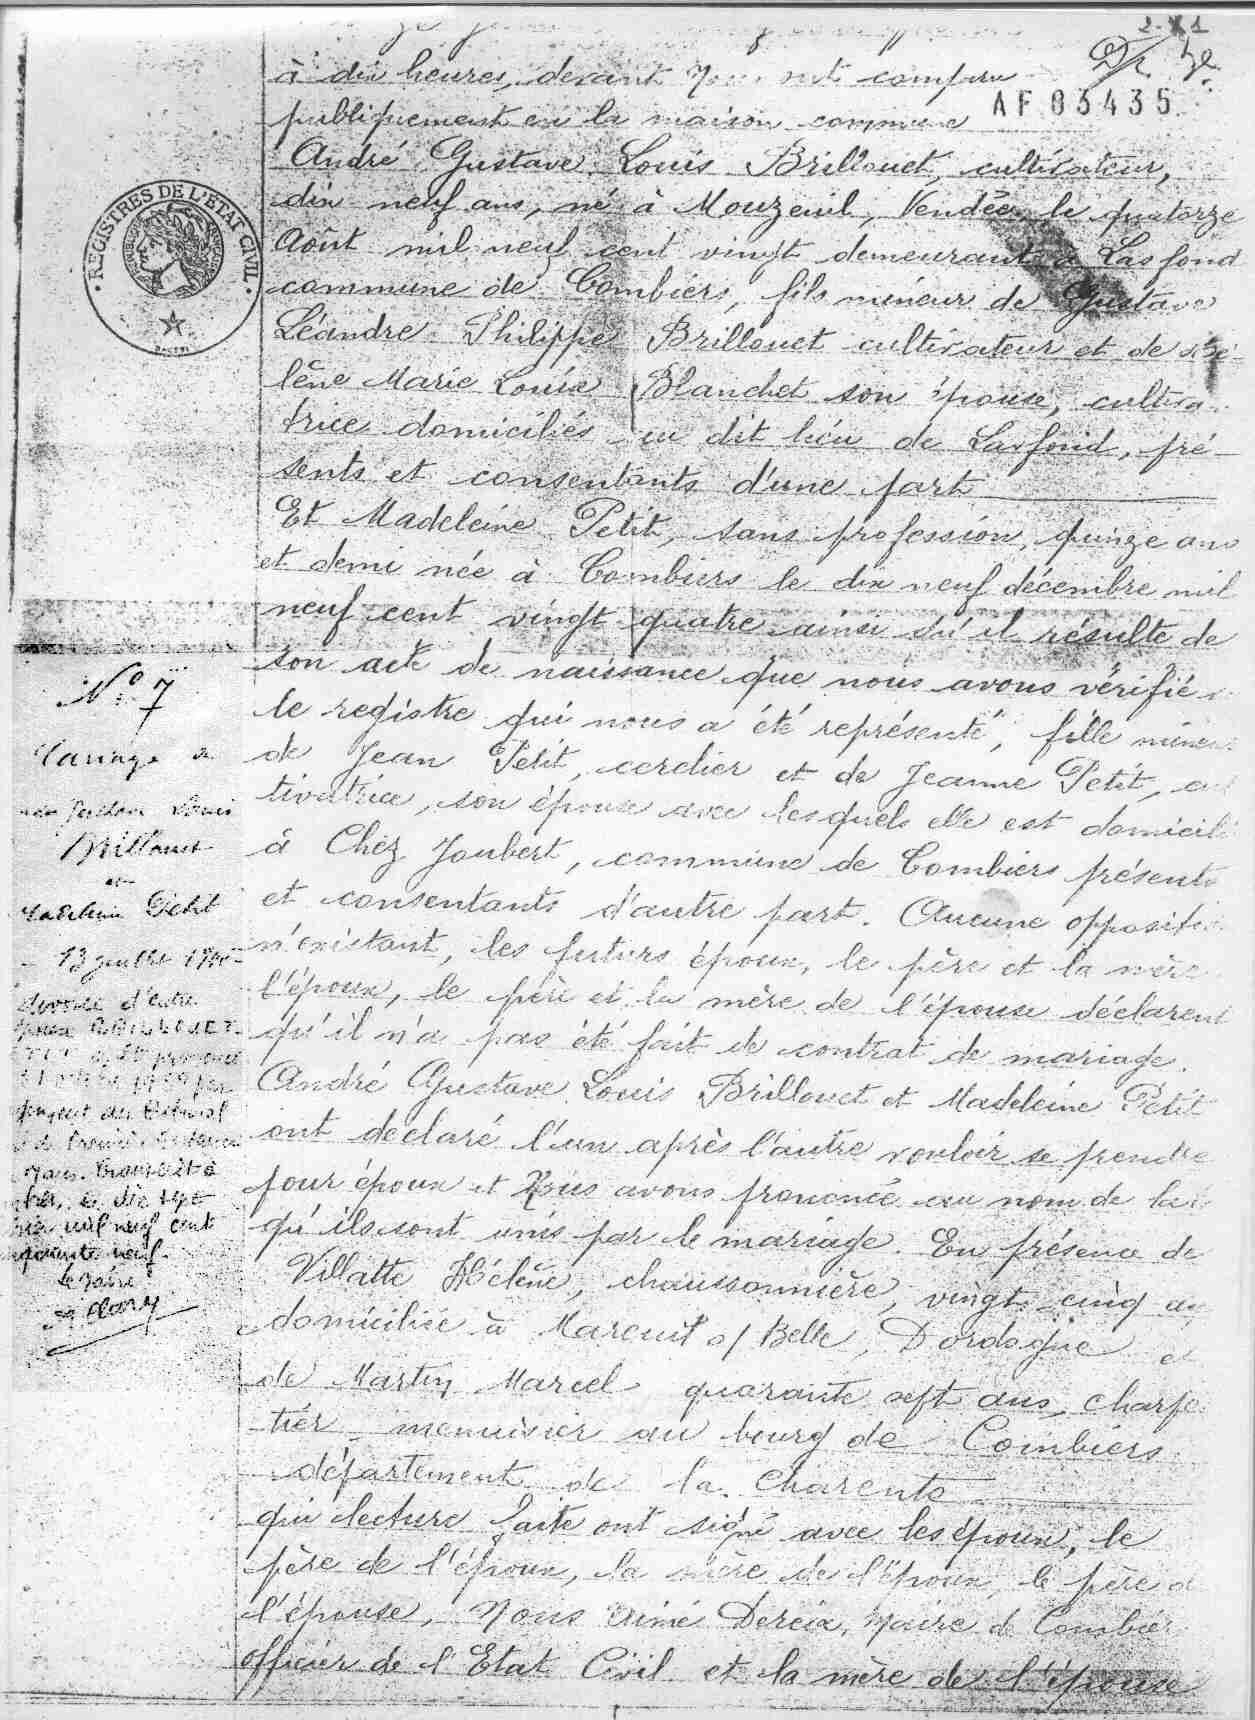 à dix heures, devant Nous ont comparu
publiquement en la maison commune
AF 03435
André Gustave Louis Brillouet, cultivateur,
dix neuf ans, né à Mouzeuil, Vendée, le quatorze
Août mil neuf cent vingt demeurant à Lasfond
commune de Combiers, fils mineur de Gustave
Léandre Philippe Brillouet cultivateur et de Hé-
lène Marie Louise Blanchet son épouse, cultiva
trice domiciliés au dit lieu de Lasfond, pré-
sents et consentants d'une part
Et Madeleine Petit, sans profession, quinze ans
et demi née à Combiers le dix neuf décembre mil
neuf cent vingt quatre ainsi qu'il résulte de
son acte de naissance que nous avons vérifié
le registre qui nous a été représenté, fille mineure
de Jean Petit, cerclier et de Jeanne Petit, cul
tivatrice, son épouse avec lesquels elle est domicili
à Chez Joubert, commune de Combiers présents
et consentants d'autre part. Aucune opposition
n'existant, les futurs époux, le père et la mère
l'époux, le père et la mère de l'épouse déclarent
qu'il n'a pas été fait de contrat de mariage.
André Gustave Louis Brillouet et Madeleine Petit
ont déclaré l'un après l'autre vouloir se prendre
pour époux et Nous avons prononcé au nom de la
qu'ils sont unis par le mariage En présence de
Villatte Hélène, chaussonnière, vingt cinq ans
domiciliée à Mareuil s/ Belle, Dordogne et
de Martin Marcel quarante sept ans, charpe
tier menuisier au bourg de Combiers
département de la Charente
qui lecture faite ont signé avec les époux, le
père de l'époux, la mère de l'époux, le père de
l'épouse, Nous Aimé Dereix, Maire de Combiers
officier de l'Etat Civil et la mère de l'épouse
REGISTRES DE L'ETAT CIVIL
No 7
Mariage de
Gustave Louis
Brillouet
et
Madeleine Petit
13 juillet 1940
divorce d'entre
époux BRILLOUET
PETIT a été prononcé
octobre 1959 par
jugement du Tribunal
de Première Instance
Transcrit à
dix sept
mil neuf cent
neuf.
le Maire